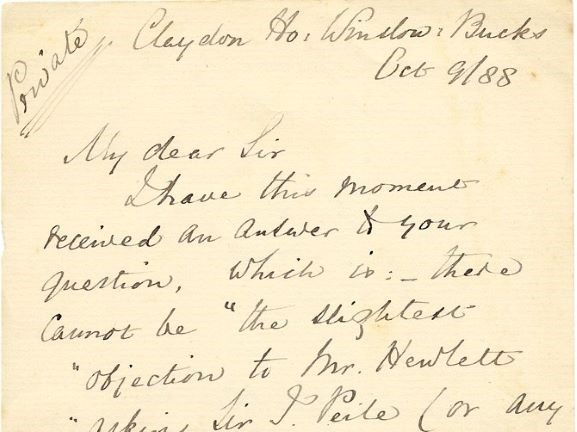 Private
Claydon Ho: Winslow: Bucks
Oct 9/88
My dear Sir
I have this moment
received an answer to your
question, which is: – there
cannot be "the slightest
"objection to Mr. Hewlett
"asking Sir J. Peile (or any